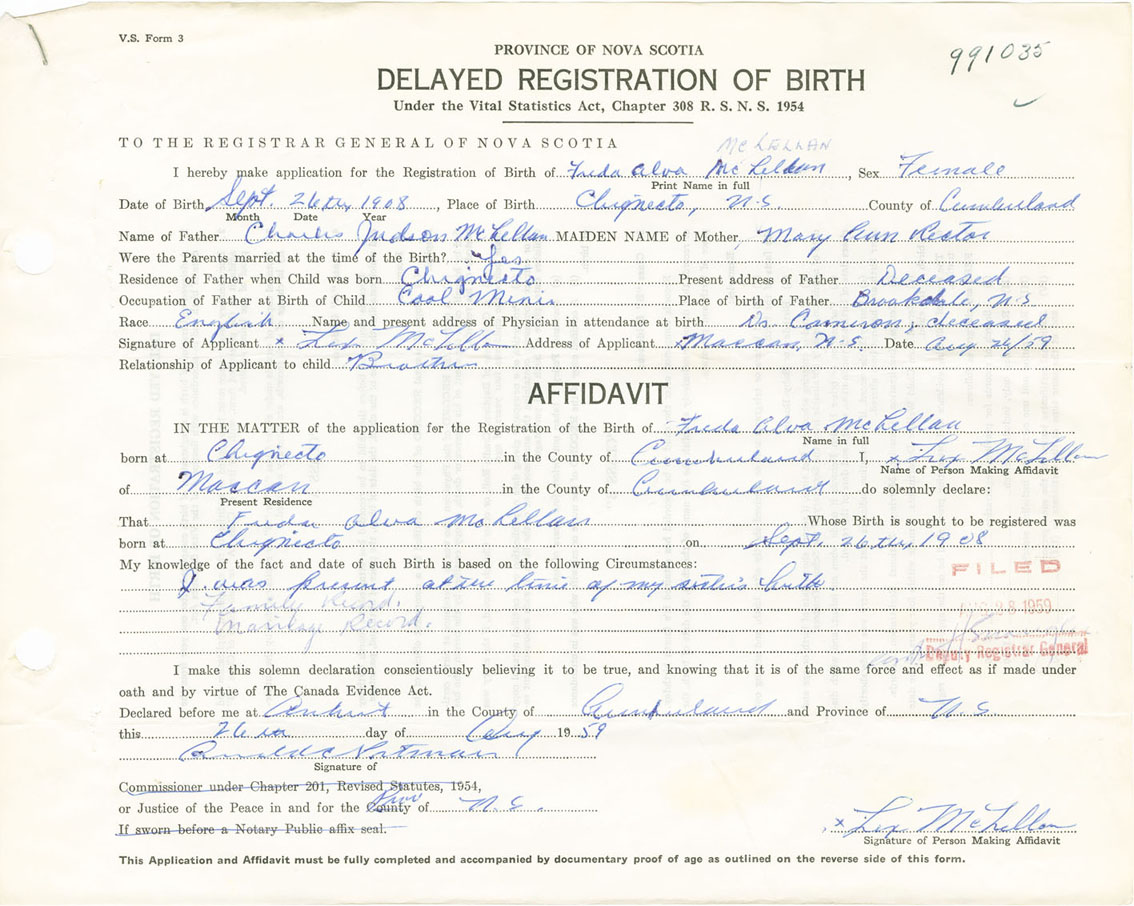 V.S. Form 3
991035
PROVINCE OF NOVA SCOTIA
DELAYED REGISTRATION OF BIRTH
Under the Vital Statistics Act, Chapter 308 R. S. N. S. 1954
TO THE REGISTRAR GENERAL OF NOVA SCOTIA
McLELLAN
I hereby make application for the Registration of Birth of Freda Alva McLellan, Sex Female
Print Name in full
Date of Birth Sept. 26th, 1908, Place of Birth Chignecto, N.S. County of Cumberland
Month Date Year
Name of Father Charles Judson McLellan MAIDEN NAME of Mother, Mary Ann Rector
Were the Parents married at the time of the Birth? Yes
Residence of Father when Child was born Chignecto Present address of Father Deceased
Occupation of Father at Birth of Child Coal Miner Place of birth of Father Brookdale, N.S
Race English Name and present address of Physician in attendance at birth Dr. Cameron, deceased
Signature of Applicant x McLellan Address of Applicant x Maccan, N.S. Date Aug 26/59
Relationship of Applicant to child Brother
AFFIDAVIT
IN THE MATTER of the application for the Registration of the Birth of Freda Alva McLellan
Name in full
born at Chignecto in the County of Cumberland I, x McLellan
Name of Person Making Affidavit
of Maccan in the County of Cumberland do solemnly declare:
Present Residence
That Freda Alva McLellan Whose Birth is sought to be registered was
born at Chignecto on Sept. 26th, 1908
My knowledge of the fact and date of such Birth is based on the following Circumstances:
I was present at the time of my sister's birth.
FILED
Family Record.
28 1959
Marriage Record.
Deputy Registrar General
I make this solemn declaration conscientiously believing it to be true, and knowing that it is of the same force and effect as if made under
oath and by virtue of The Canada Evidence Act.
Declared before me at Amherst in the County of Cumberland and Province of N.S.
this 26th day of Aug 1959
Signature of
Commissioner under Chapter 201, Revised Statutes, 1954,
or Justice of the Peace in and for the County of N.S.
If sworn before a Notary Public affix seal.
x McLellan
Signature of Person Making Affidavit
This Application and Affidavit must be fully completed and accompanied by documentary proof of age as outlined on the reverse side of this form.